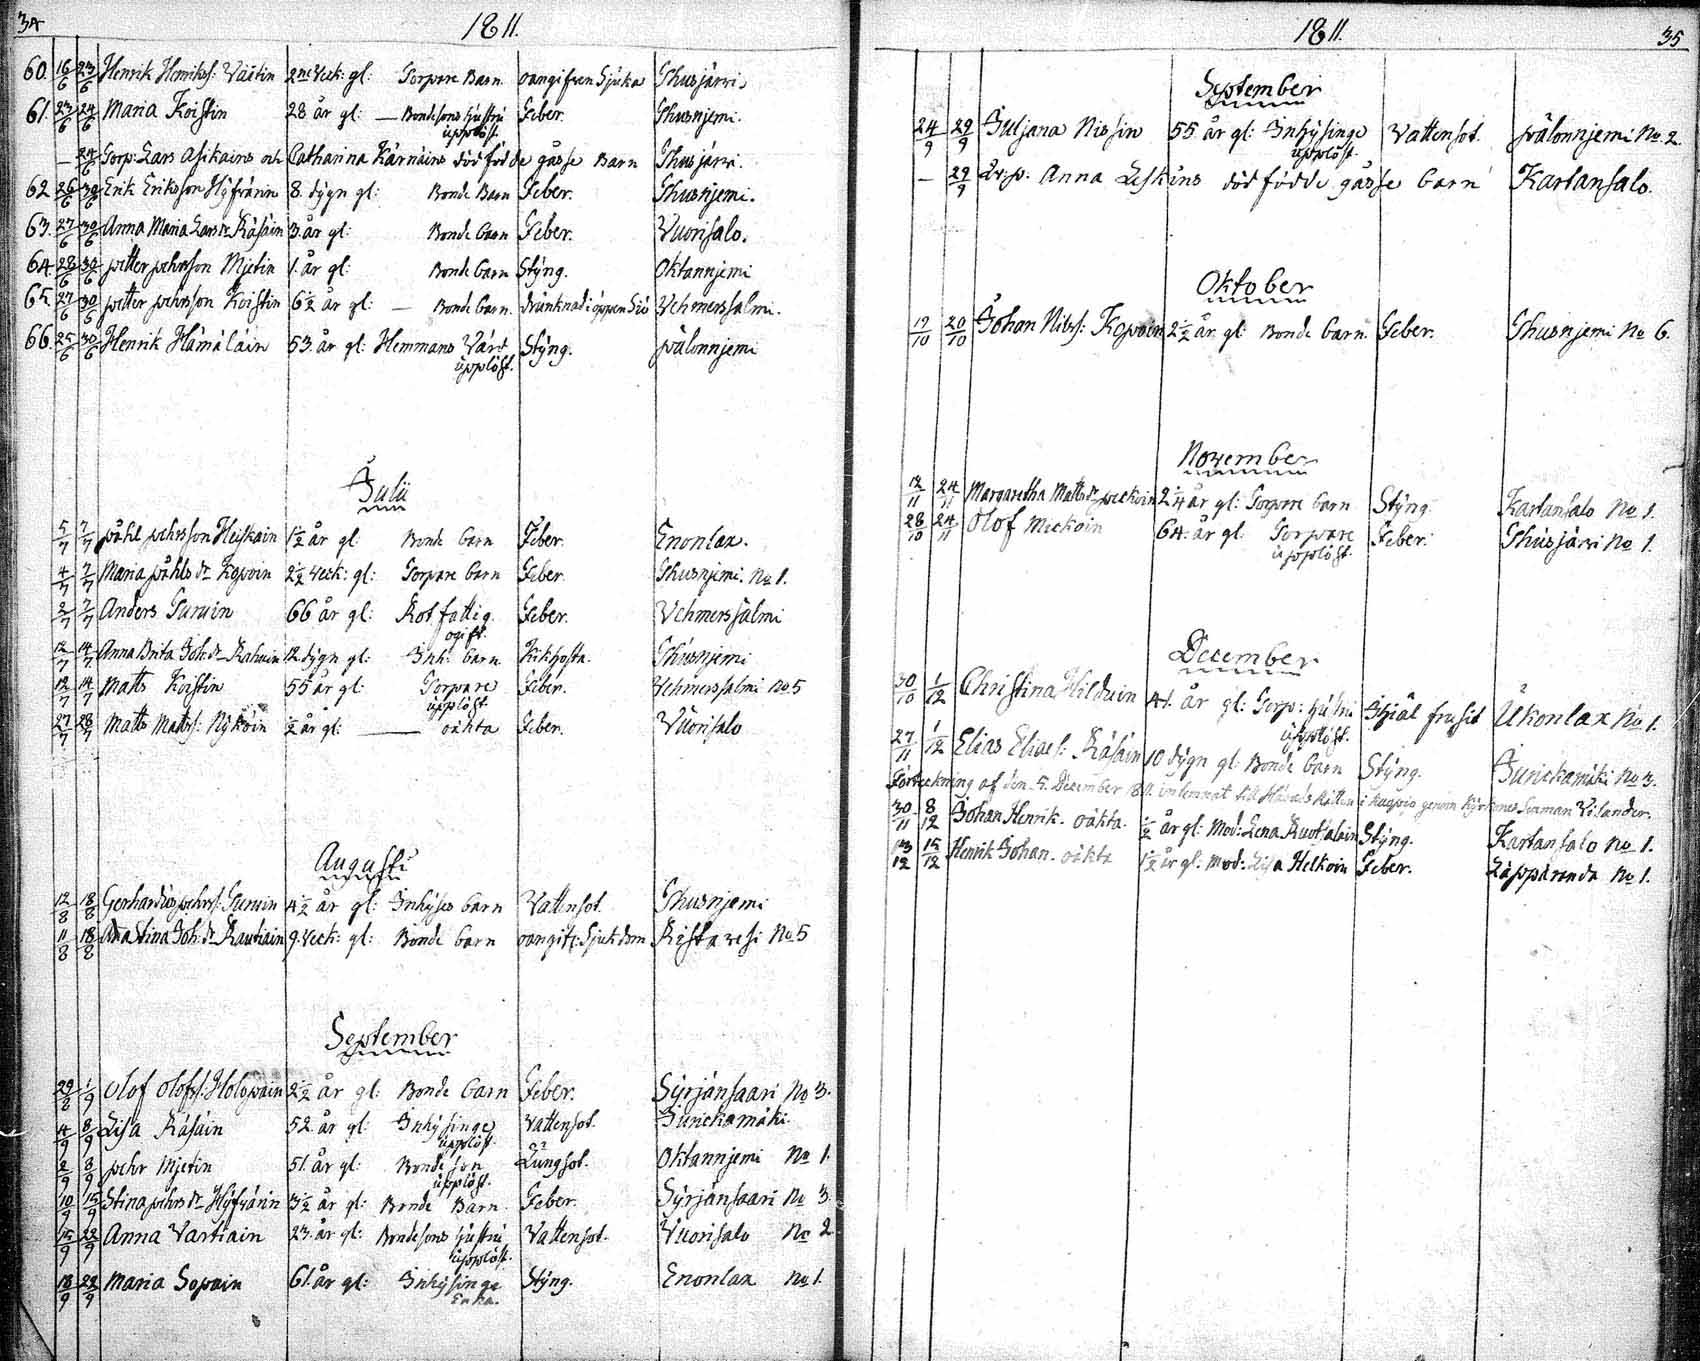 34
1811.
60. 16/6 23/6 Henrik Henrikss: Väätin 2ne Veck: gl: Torpare Barn oangifven Sjuka Ihusjärvi
61. 23/6 24/6 Maria Koistin 28 år gl: — Bondesons hustru Feber. Ihusnjemi.
upplöst.
— 24/6 Torp: Lars Asikains och Catharina Kärnäins död född gåsse Barn Ihusjärvi.
62 26/6 30/6 Erik Eriksson Hyfvärin 8. dygn gl: Bonde Barn Feber. Ihusnjemi.
63. 27/6 30/6 Anna Maria Larsdr Räsäin 3 år gl: Bonde barn Feber. Vuorisalo.
64. 28/6 30/6 petter pehrsson Mjetin 1. år gl: Bonde barn Styng. Oktannjemi
65. 27/6 30/6 petter pehrsson Koistin 6 1/2 år gl: — Bonde barn. drunknad i öppen Siö Vehmerssalmi.
66. 25/6 30/6 Henrik Hämäläin 53. år gl: Hemmans Värd Styng. pälonnjemi
upplöst.
Julii
5/7 7/7 påhl pehrsson Heiskain 1 1/2 år gl. Bonde barn Feber. Enonlax.
4/7 7/7 Maria påhls dr Kopoin 2 1/2 Veck: gl: Torpare barn Feber. Ihusnjemi. No 1.
2/7 7/7 Anders Turuin 66 år gl: Rot fattig. Feber. Vehmerssalmi
ogift.
12/7 14/7 Anna Brita Joh: dr Rahuin 12. dygn gl: Inh: barn Kikhosta. Ihusnjemi
12/7 14/7 Matts Koistin 55 år gl: Torpare Feber. Vehmerssalmi No 5
upplöst.
27/7 28/7 Matts Mattss: Nykoin 1/2 år gl: — oächta Feber. Vuorisalo
Augusti
12/8 18/8 Gerhardus pehrs: Turuin 4 1/2 år gl: Inhyses barn Vattusot. Ihusnjemi
11/8 18/8 Stina Joh: dr Rautiain 9. Veck: gl: Bonde barn oangif: Sjukdom Ristavesi No 5
September
29/8 1/9 Olof Olofs: Holopain 2 1/2 år gl: Bonde barn Feber. Syrjänsaari No 3.
4/9 8/9 Lisa Räsäin 52. år gl: Inhysinge Vattensot. Jurickamäki.
upplöst.
2/9 8/9 pehr Mjetin 51. år gl: Bonde son Lungsot. Oktannjemi No 1.
upplöst.
10/9 15/9 Stina pehrsdr Hyfvärin 3 1/2 år gl: Bonde Barn Feber. Syrjänsaari No 3.
15/9 22/9 Anna Vartiain 23. år gl: Bondesons hustru Vattensot. Vuorisalo No 2
upplöst.
18/9 22/9 Maria Sopain 61. år gl: Inhysinge Styng. Enonlax No 1.
Enka.
1811.
35
September
24/9 29/9 Juljana Nissin 55 år gl: Inhysinge Vattensot. pälonnjemi No 2.
upplöst.
— 29/9 Anna Leskins död födde gåsse barn Kartansalo.
Oktober
19/10 20/10 Johan Nilss: Kopoin 2 1/2 år gl: Bonde barn. Feber. Ihusnjemi No 6.
November
12/11 24/11 Margaretha Mattsdr peckoin 2 1/4 år gl: Torpare barn Styng. Kartansalo No 1.
28/10 24/11 Olof Mickoin 64. år gl: Torpare Feber. Ihusjärvi No 1.
upplöst.
December
30/10 1/12 Christina Hilduin 41. år gl: Torp: hustru Ihjäl frusit Ukonlax No 1.
upplöst.
27/11 1/12 Elias Elias: Räsäin 10 dygn gl: Bonde barn Styng. Jurickamäki No 3.
Förteckning af den 5. December 1811. inlemnat till Härads Rätten i Kuopio genom Kyrkones Inman Vilander.
30/11 8/12 Johan Henrik. oäkta. 1/2 år gl: Mod: Lena Ruotsalain Styng. Kartansalo No 1.
13/12 15/12 Henrik Johan. oäkta 1 1/2 år gl: Mod: Lisa Helkoin Feber. Läppäranda No 1.